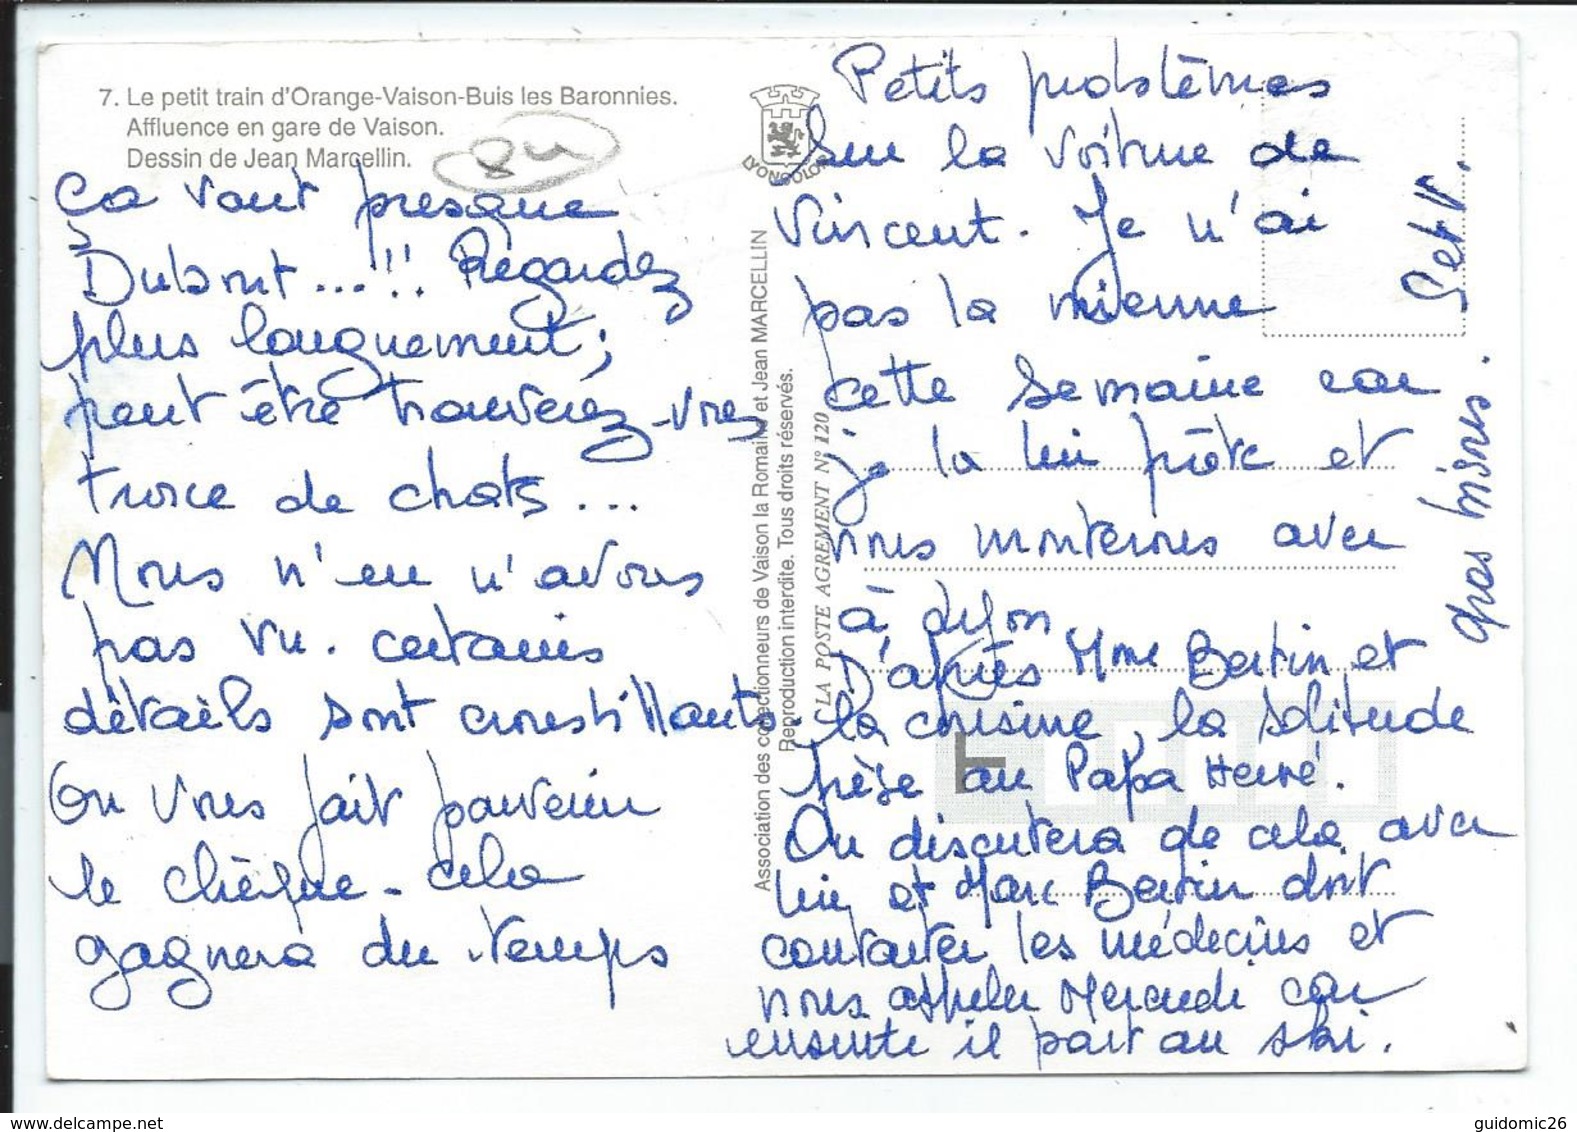 7. Le petit train d'Orange-Vaison-Buis les Baronnies.
Affluence en gare de Vaison.
Dessin de Jean Marcellin.
Ca vaut presque
Dubout...!!! Regardez
plus longuement;
peut être trouverez-vous
trace de chats...
Nous n'en n'avons
pas vu. certains
détails sont croustillants.
On vous fait parvenir
le chèque - cela
gagnera du temps
LYONCOLOR
Association des collectionneurs de Vaison la Romaine et Jean MARCELLIN
Reproduction interdite. Tous droits réservés.
LA POSTE AGREMENT N° 120
Petits problèmes
sur la voiture de
Vincent. Je n'ai
pas la mienne
cette semaine car
je la lui prête et
nous monterons avec
à Lyon
D'après Mme Bertin et
la cousine, la solitude
pèse au Papa Hervé.
On discutera de cela avec
lui et Marc Bertin doit
contacter les médecins et
nous appeler Mercredi car
ensuite il part au ski.
gros bisous.
S et V.
guidomic26